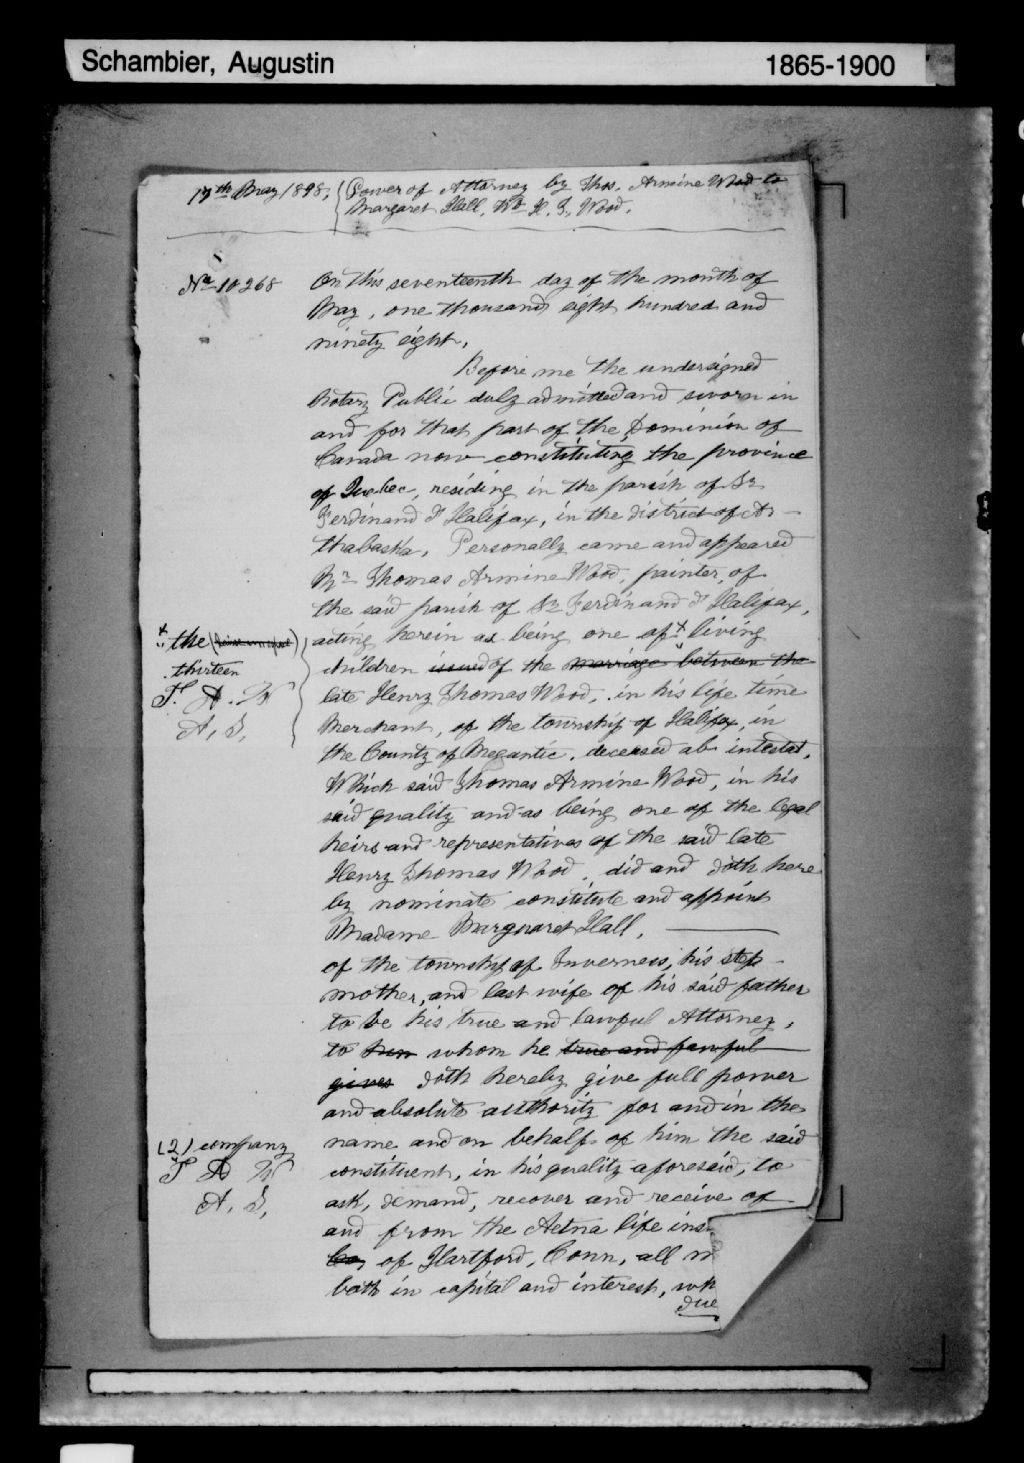 Schambier, Augustin
1865-1900
17th May 1898,
Power of Attorney by Thos. Armine Wood to
Margaret Hall, Wd H. T. Wood.
No 10268
On this seventeenth day of the month of
May, one thousand eight hundred and
ninety eight,
Before me the undersigned
Notary Public duly admitted and sworn in
and for that part of the Dominion of
Canada now constituting the province
of Quebec, residing in the parish of St
Ferdinand d'Halifax, in the district of Ar-
thabaska, Personally came and appeared
Mr Thomas Armine Wood, painter, of
the said parish of St Ferdinand d'Halifax,
x the
thirteen
T. A. W
A. S,
acting herein as being one of x living
children issued of the marriage between the
late Henry Thomas Wood, in his life time
Merchant, of the township of Halifax, in
the County of Megantic, deceased ab intestat,
Which said Thomas Armine Wood, in his
said quality and as being one of the legal
heirs and representatives of the said late
Henry Thomas Wood, did and doth here
by nominate constitute and appoint
Madame Marguaret Hall,
of the township of Inverness, his step-
mother, and last wife of his said father
to be his true and lawful Attorney,
to him whom he true and lawful
gives doth hereby give full power
and absolute authority for and in the
name and on behalf of him the said
(2) company
T A W
A. S,
constituent, in his quality aforesaid, to
ask, demand, recover and receive of
and from the Aetna life ins
Co, of Hartford, Conn, all
both in capital and interest, wh
due